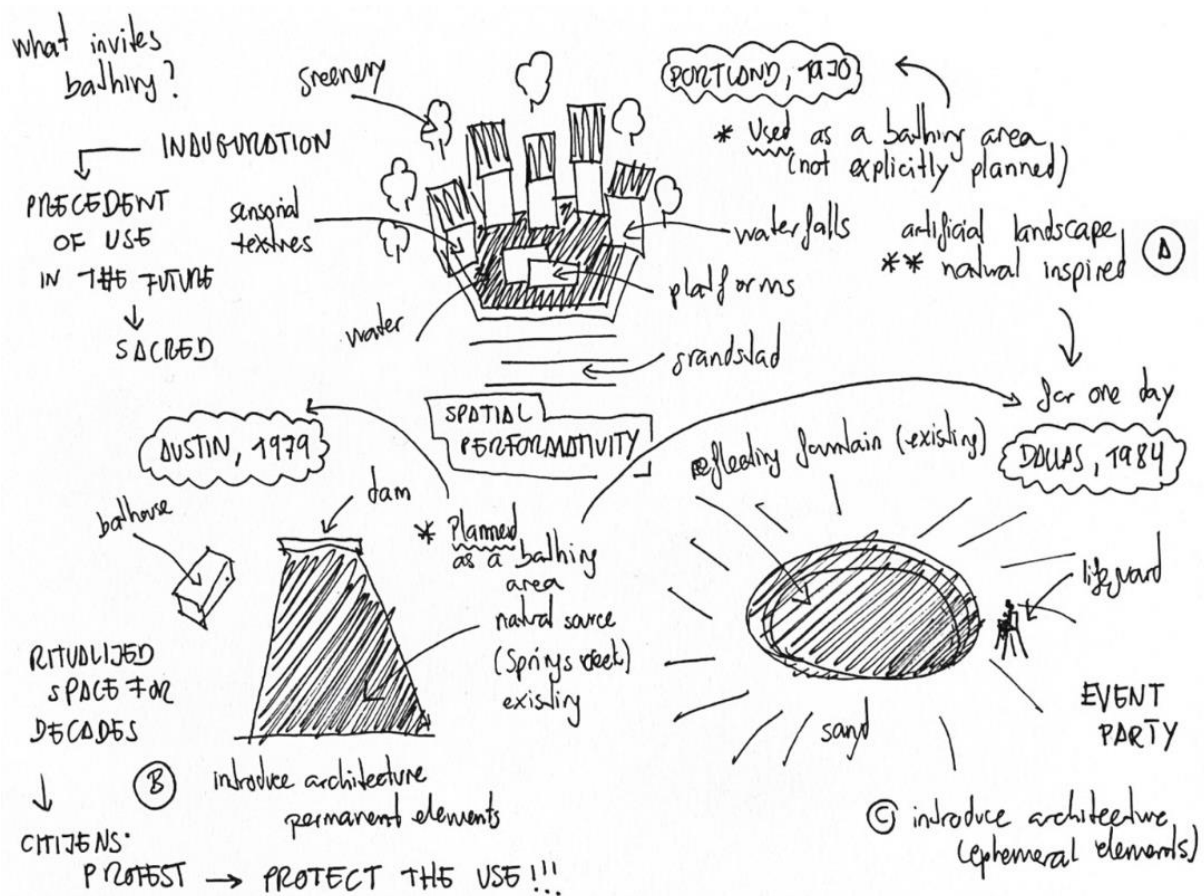 what invites
bathing?
INAUGURATION
PRECEDENT
OF USE
IN THE FUTURE
SACRED
greenery
sensorial
textres
water
waterfalls
platforms
grandstad
PORTLAND, 1970
* Used as a bathing area
(not explicitly planned)
artificial landscape
** natural inspired
A
SPATIAL
PERFORMATIVITY
AUSTIN, 1979
bathouse
dam
* Planned
as a bathing
area
natural source
(Springs
existing
RITUALIZED
SPACE FOR
DECADES
B
introduce architecture
permanent elements
CITIZENS'
PROTEST → PROTECT THE USE!!!
for one day
DALLAS, 1984
reflecting fountain (existing)
lifeguard
sand
EVENT
PARTY
C introduce architecture
(ephemeral elements)